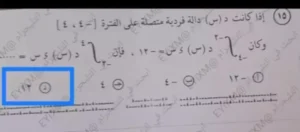 ١٥ إذا كانت د (س) دالة فردية متصلة على الفترة [-٤ ، ٤]
وكان ∫ د (س) ء س = -١٢ ، فإن ∫ د (س) ء س = ......
أ -١٢ ب -٤ ج ٤ د ١٢